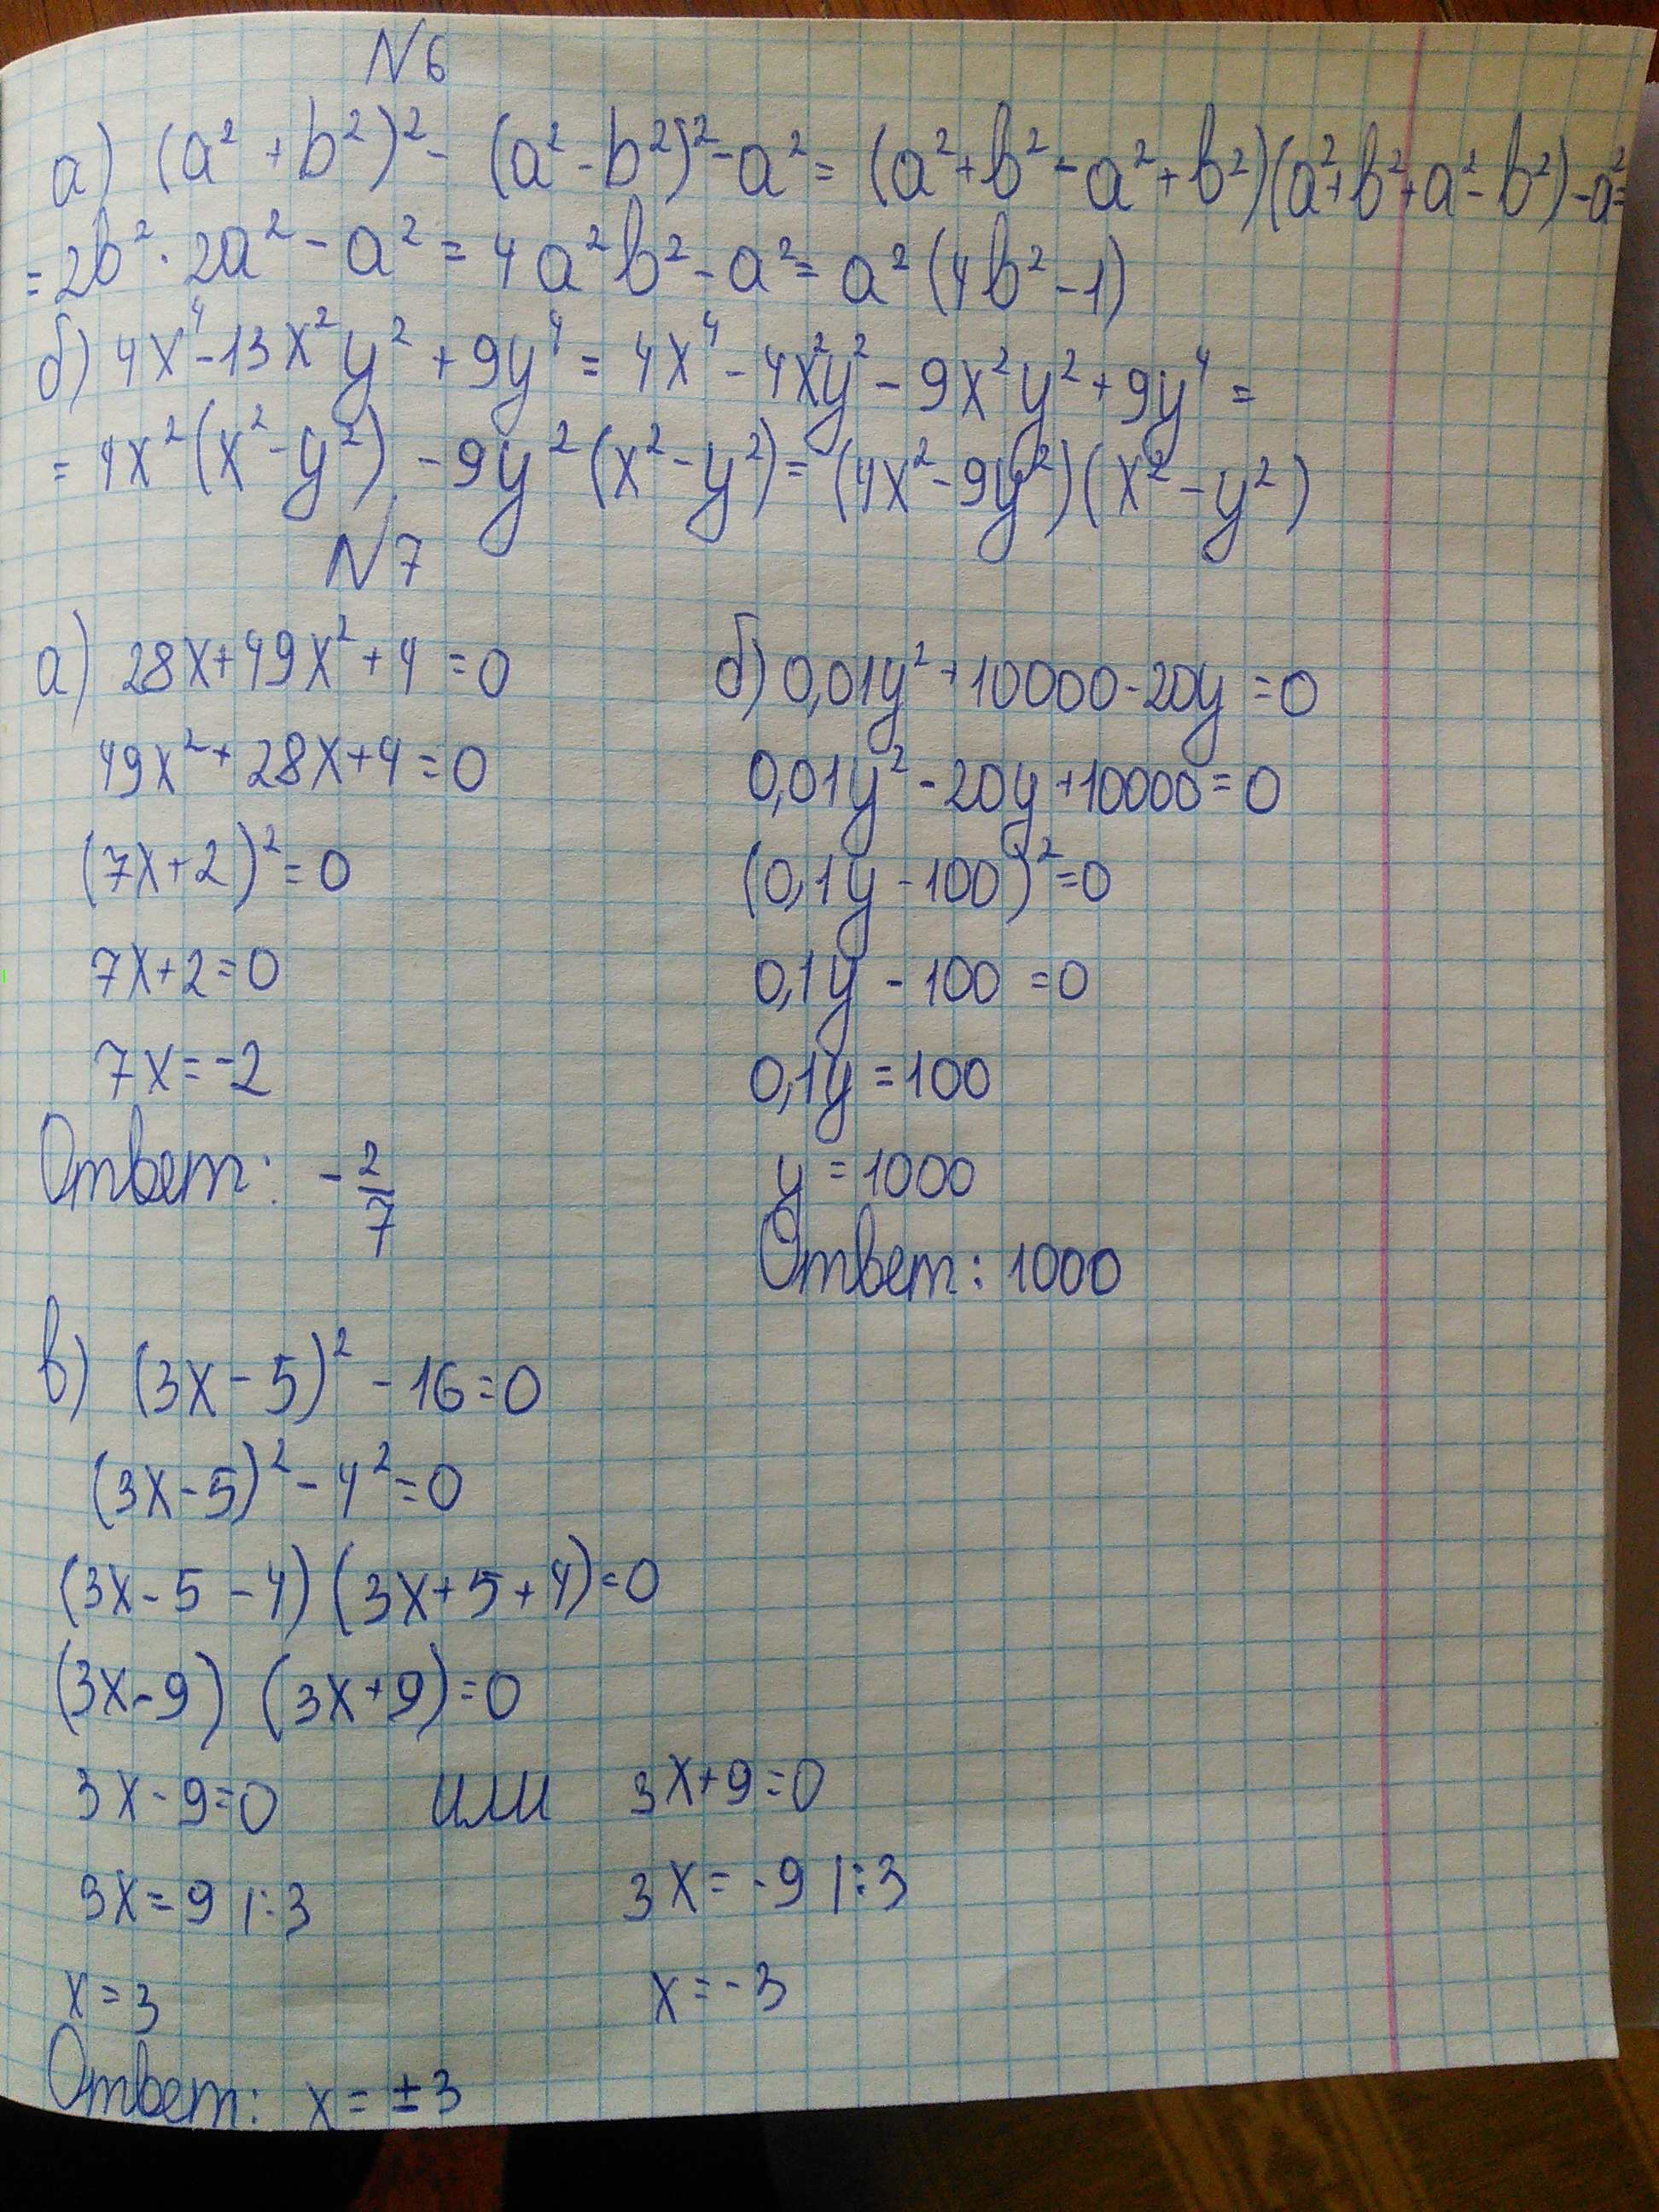 N6
а) (a² + b²)² - (a² - b²)² - a² = (a² + b² - a² + b²)(a² + b² + a² - b²) - a² =
= 2b² · 2a² - a² = 4a²b² - a² = a²(4b² - 1)
б) 4x⁴ - 13x²y² + 9y⁴ = 4x⁴ - 4x²y² - 9x²y² + 9y⁴ =
= 4x²(x² - y²) - 9y²(x² - y²) = (4x² - 9y²)(x² - y²)
N7
а) 28x + 49x² + 4 = 0
49x² + 28x + 4 = 0
(7x + 2)² = 0
7x + 2 = 0
7x = -2
Ответ: -2/7
б) 0,01y² + 10000 - 20y = 0
0,01y² - 20y + 10000 = 0
(0,1y - 100)² = 0
0,1y - 100 = 0
0,1y = 100
y = 1000
Ответ: 1000
в) (3x - 5)² - 16 = 0
(3x - 5)² - 4² = 0
(3x - 5 - 4)(3x + 5 + 4) = 0
(3x - 9) (3x + 9) = 0
3x - 9 = 0 или 3x + 9 = 0
3x = 9 |:3 3x = -9 |:3
x = 3 x = -3
Ответ: x = ±3